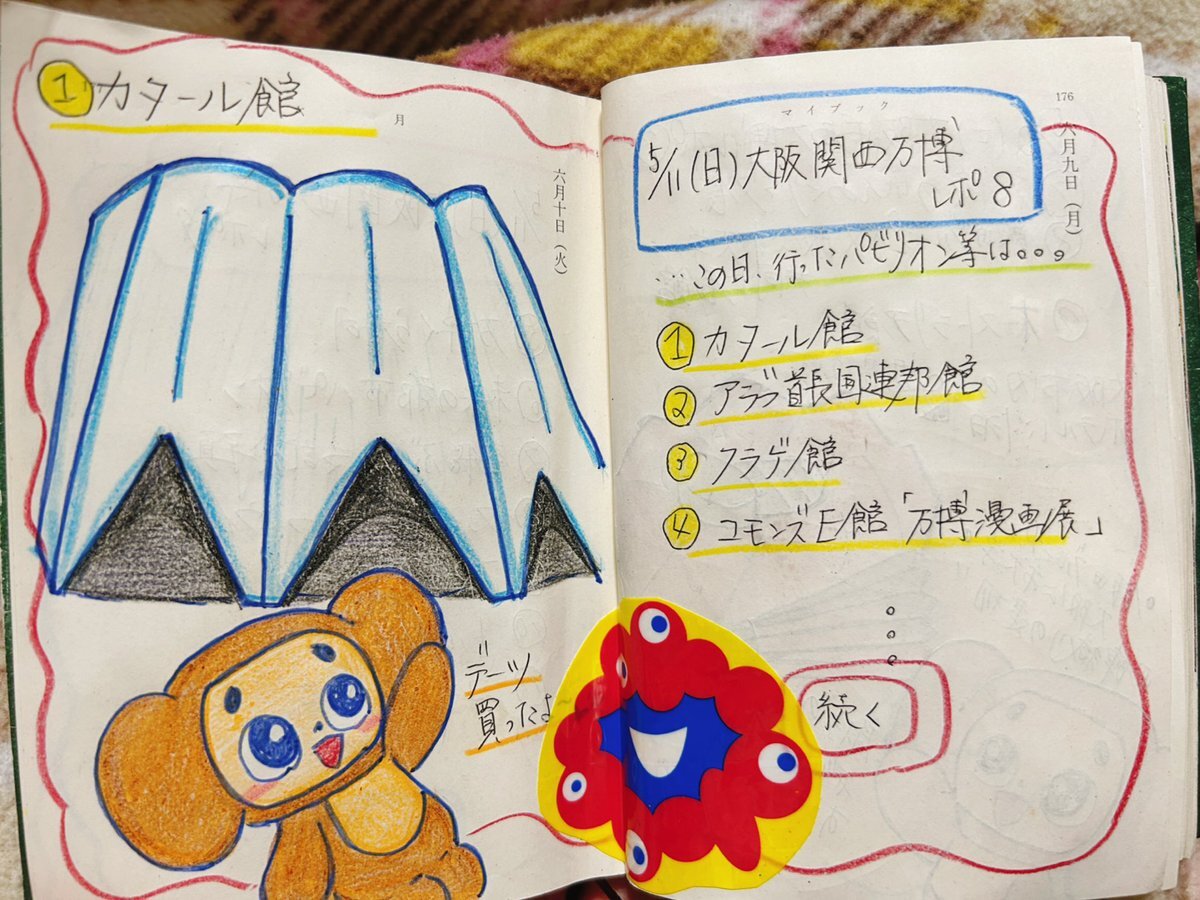 ① カタール館
月
六月十日(火)
デーツ
買ったよ
マイブック
176
六月九日(月)
5/11(日)大阪関西万博
レポ8
…この日、行ったパビリオン等は。。。
① カタール館
② アラブ首長国連邦館
③ クラゲ館
④ コモンズE館「万博漫画展」
続く